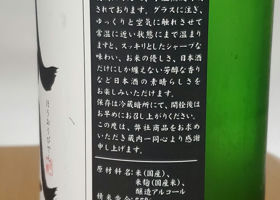 されております。グラスに注ぎ、
ゆっくりと空気に触れさせて
常温に近い状態にまで温め
ますと、スッキリとしたシャープな
味わい、お米の優しさ、日本酒
だけにしか纏えない芳醇な香り
など日本酒の素晴らしさを
お楽しみいただけます。
保存は冷蔵暗所にて、開栓後は
お早めにお召し上がりください。
この度は、弊社商品をお求め
いただき蔵内一同心より感謝
申し上げます。
原材料名:米(国産)、
米麹(国産米)、
醸造アルコール